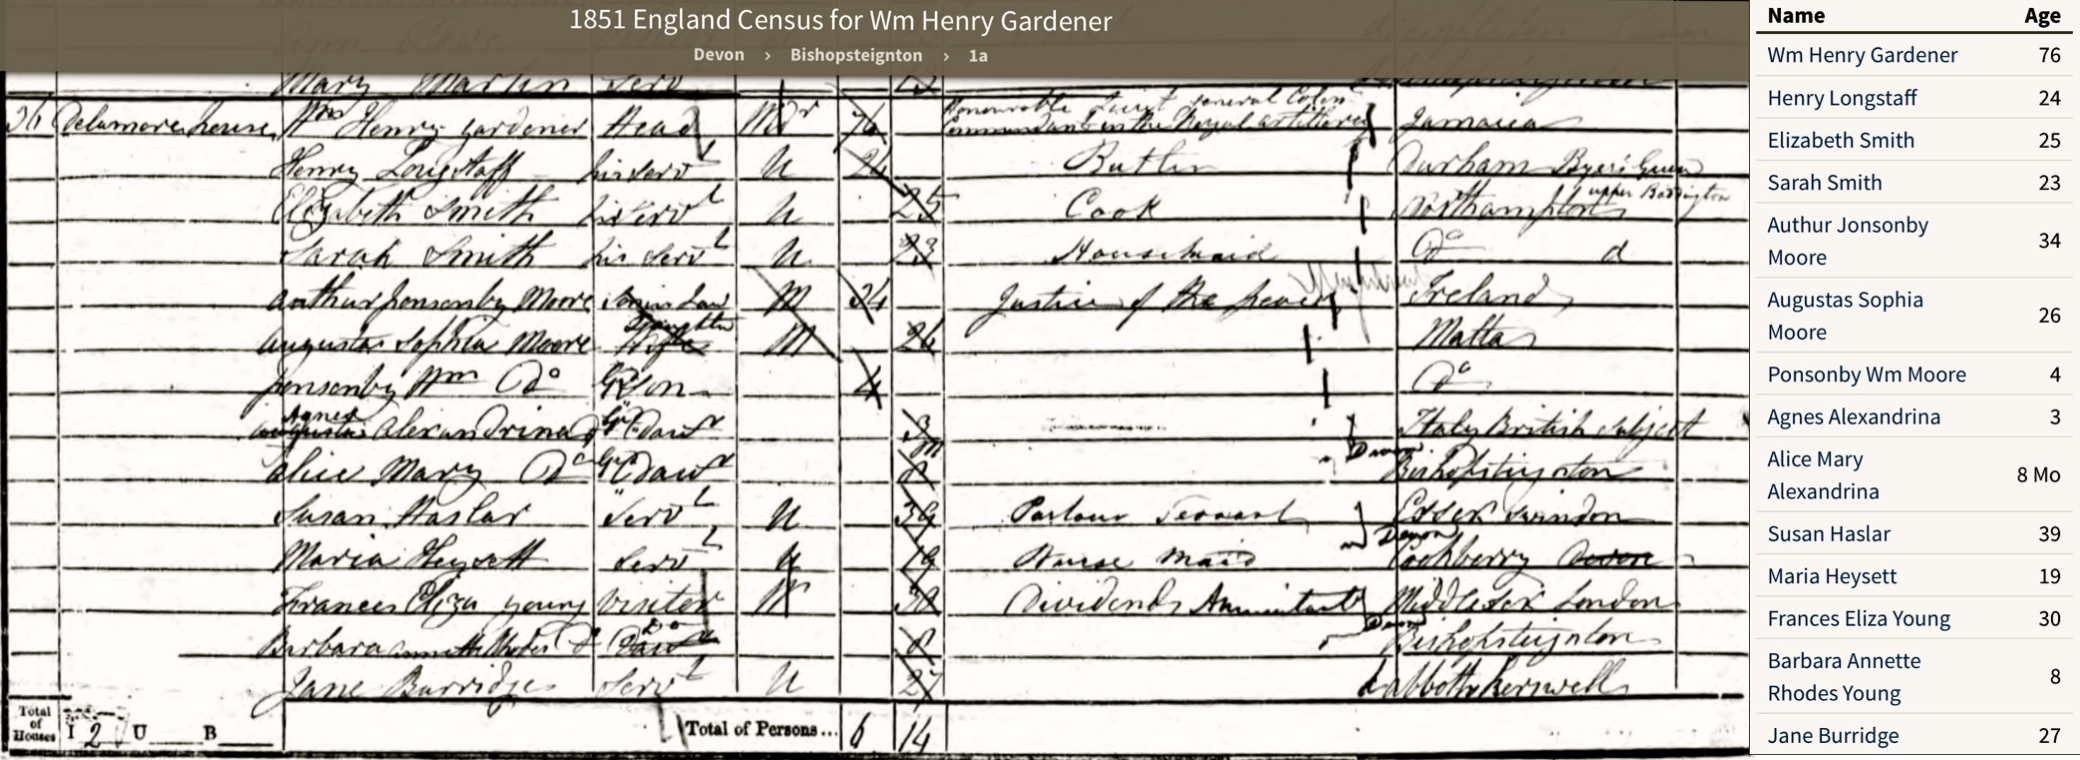 1851 England Census for Wm Henry Gardener
Devon > Bishopsteignton > 1a
Mary Martin Servt
Delamore house Wm Henry gardener Head Wdr 76 Honourable Lieut general Colon
Commandant in the Royal artillery Jamaica
Henry Longstaff his servt U 24 Butler Durham Byers Green
Elizabeth Smith his servt U 25 Cook Northampton upper Boddington
Sarah Smith his servt U 23 Housemaid Do d
arthur ponsonby Moore Son in Law M 34 Justice of the peace Ireland
augusta Sophia Moore Wife Daughter M 26 Malta
ponsonby Wm Do Gr Son 4 Do
augusta Agnes alexandrina Gr Daur 3 Italy British Subject
alice Mary Do Gr Daur 8 m Devon Bishopsteignton
Susan Haslar Servt U 39 Parlour Servant Essex
Maria Heysett Servt U 19 Nurse maid Devon Cookberry Devon
Frances Eliza young Visitor M 30 Dividends Annuitant Middlesex London
Barbara annette Rhodes Do Daur Do 8 Devon Bishopsteignton
Jane Burridge Servt U 27 abbotskerswell
Total of Houses I 2 U B Total of Persons... 6 14
Name Age
Wm Henry Gardener 76
Henry Longstaff 24
Elizabeth Smith 25
Sarah Smith 23
Authur Jonsonby
Moore 34
Augustas Sophia
Moore 26
Ponsonby Wm Moore 4
Agnes Alexandrina 3
Alice Mary
Alexandrina 8 Mo
Susan Haslar 39
Maria Heysett 19
Frances Eliza Young 30
Barbara Annette
Rhodes Young 8
Jane Burridge 27